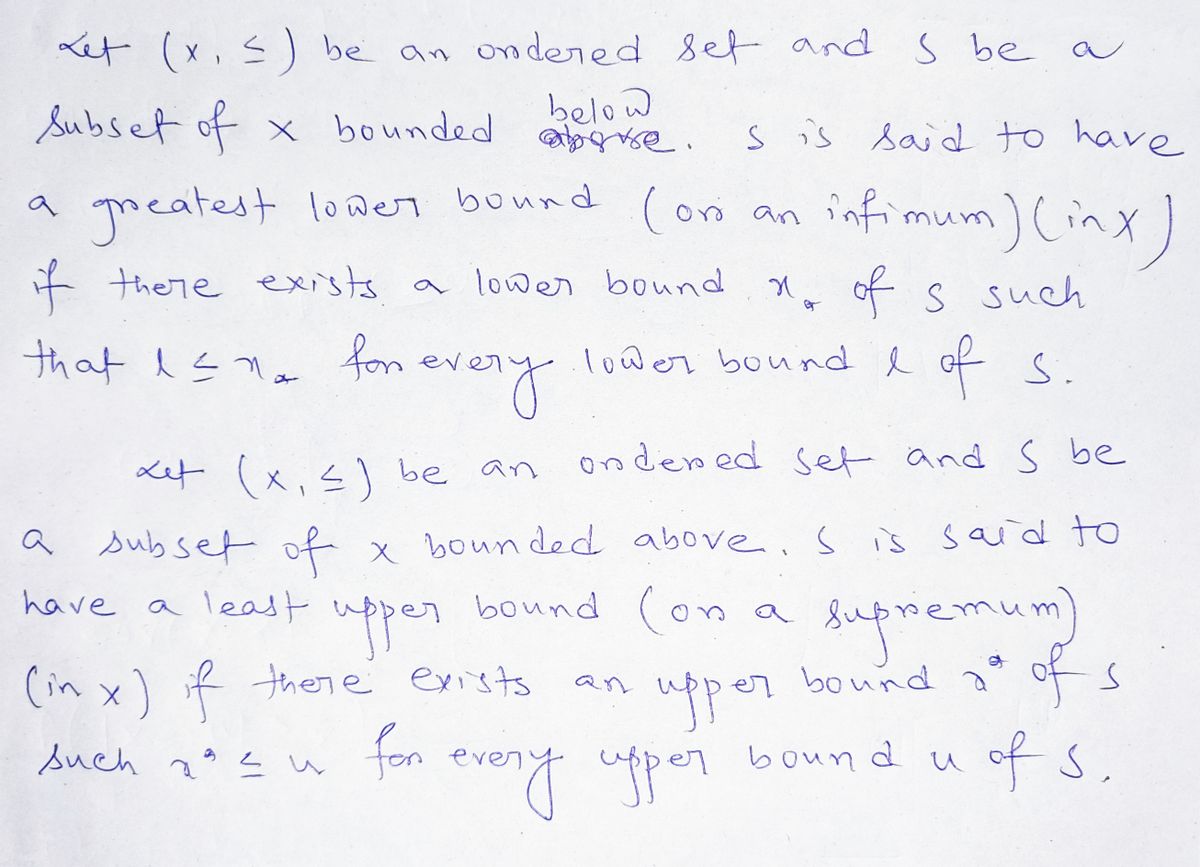 Let (X, ≤) be an ordered set and S be a
subset of X bounded below. S is said to have
a greatest lower bound (or an infimum) (in X)
if there exists a lower bound x_* of S such
that l ≤ x_* for every lower bound l of S.
Let (X, ≤) be an ordered set and S be
a subset of X bounded above. S is said to
have a least upper bound (or a supremum)
(in X) if there exists an upper bound x^* of S
such x^* ≤ u for every upper bound u of S.